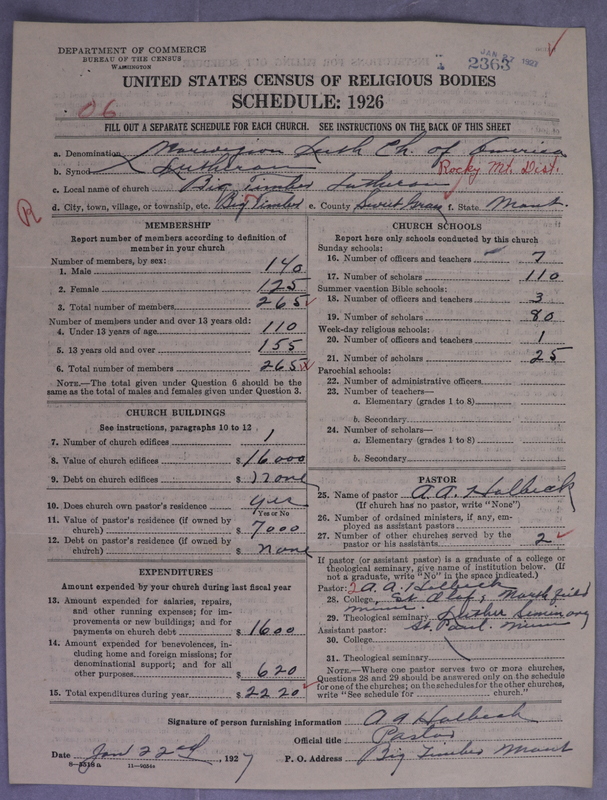 DEPARTMENT OF COMMERCE
BUREAU OF THE CENSUS
WASHINGTON
JAN 27 1927
2363
UNITED STATES CENSUS OF RELIGIOUS BODIES
SCHEDULE: 1926
06
FILL OUT A SEPARATE SCHEDULE FOR EACH CHURCH. SEE INSTRUCTIONS ON THE BACK OF THIS SHEET
a. Denomination Norwegian Luth Ch. of America
b. Synod Lutheran Rocky Mt. Dist.
c. Local name of church Big Timber Lutheran
d. City, town, village, or township, etc. Big Timber e. County Sweet Grass f. State Mont.
R
MEMBERSHIP
Report number of members according to definition of
member in your church
Number of members, by sex:
1. Male 140
2. Female 125
3. Total number of members 265
Number of members under and over 13 years old:
4. Under 13 years of age 110
5. 13 years old and over 155
6. Total number of members 265
NOTE.—The total given under Question 6 should be
same as the total of males and females given under Question 3.
CHURCH BUILDINGS
See instructions, paragraphs 10 to 12
7. Number of church edifices 1
8. Value of church edifices $16000
9. Debt on church edifices $ none
10. Does church own pastor's residence yes
Yes or No
11. Value of pastor's residence (if owned by
church) $ 7000
12. Debt on pastor's residence (if owned by
church) $ none
EXPENDITURES
Amount expended by your church during last fiscal year
13. Amount expended for salaries, repairs,
and other running expenses; for im-
provements or new buildings; and for
payments on church debt $ 1600
14. Amount expended for benevolences, in-
cluding home and foreign missions; for
denominational support; and for all
other purposes $ 620
15. Total expenditures during year $ 2220
CHURCH SCHOOLS
Report here only schools conducted by this church
Sunday schools:
16. Number of officers and teachers 7
17. Number of scholars 110
Summer vacation Bible schools:
18. Number of officers and teachers 3
19. Number of scholars 80
Week-day religious schools:
20. Number of officers and teachers 1
21. Number of scholars 25
Parochial schools:
22. Number of administrative officers
23. Number of teachers—
a. Elementary (grades 1 to 8)
b. Secondary
24. Number of scholars—
a. Elementary (grades 1 to 8)
b. Secondary
PASTOR
25. Name of pastor A. A. Holbeck
(If church has no pastor, write "None")
26. Number of ordained ministers, if any, em-
ployed as assistant pastors
27. Number of other churches served by the
pastor or his assistants 2
If pastor (or assistant pastor) is a graduate of a college or
theological seminary, give name of institution below. (If
not a graduate, write "No" in the space indicated.)
Pastor: A. A. Holbeck
28. College St Olaf, Northfield
Minn.
29. Theological seminary Luther Seminary
Assistant pastor: St Paul. Minn
30. College
31. Theological seminary
NOTE.—Where one pastor serves two or more churches,
Questions 28 and 29 should be answered only on the schedule
for one of the churches; on the schedules for the other churches,
write "See schedule for church."
Signature of person furnishing information A A Holbeck
Official title Pastor
Date Jan 22nd, 1927 P. O. Address Big Timber Mont
8—5518a 11—9054a